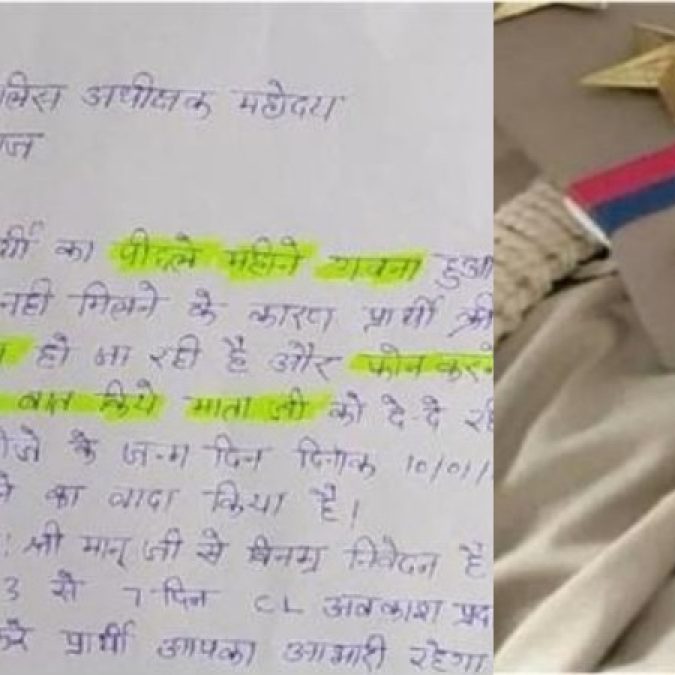 लिस अधीक्षक महोदय
ज
र्थी का पीछले महीने गवना हुआ
नही मिलने के कारण प्रार्थी की
हो जा रही है और फोन करने
बात किये माता जी को दे-दे रह
के जन्म दिन दिनांक 10/01/
का वादा किया है।
श्री मान् जी से विनम्र निवेदन है
3 से 7 दिन CL अवकाश प्रद
करे प्रार्थी आपका आभारी रहेगा